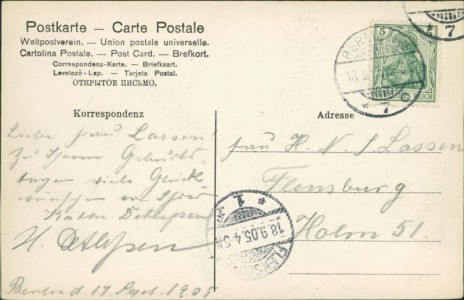 Postkarte — Carte Postale
Weltpostverein. — Union postale universelle.
Cartolina Postale. — Post Card. — Brefkort.
Correspondenz-Karte. — Briefkaart.
Levelező-Lap. — Tarjeta Postal.
ОТКРЫТОЕ ПИСЬМО.
Korrespondenz
Liebe Frau Lassen!
Zu Ihrem Geburts-
tage viele Glück-
wünsche
Detlefsen
H. Detlefsen
Berlin d. 17 Sept. 1905
Adresse
Frau H. N. S. Lassen
Flensburg
Holm 51.
5
7
* 7
1
18.9.05.4-5
FLENSB